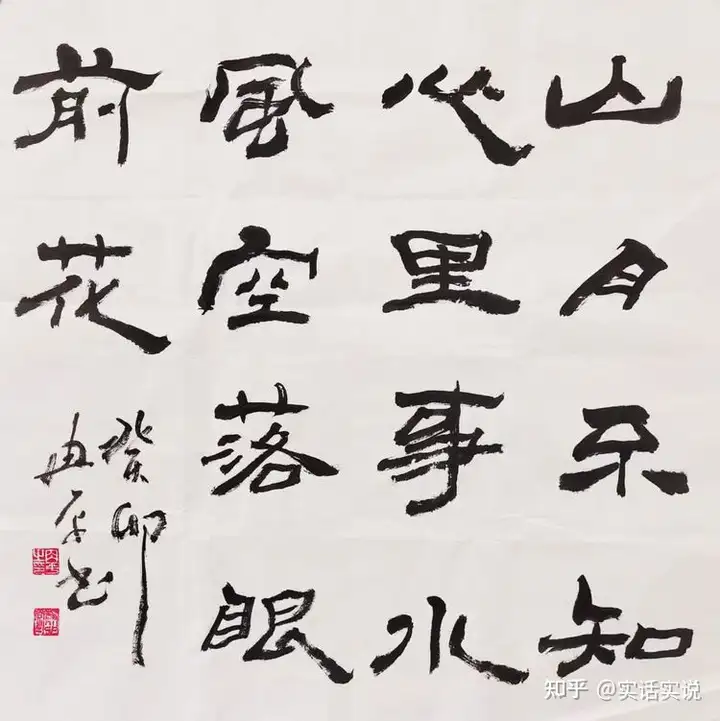 山月不知
心里事水
風空落眼
前花
癸卯
书
知乎 @实话实说